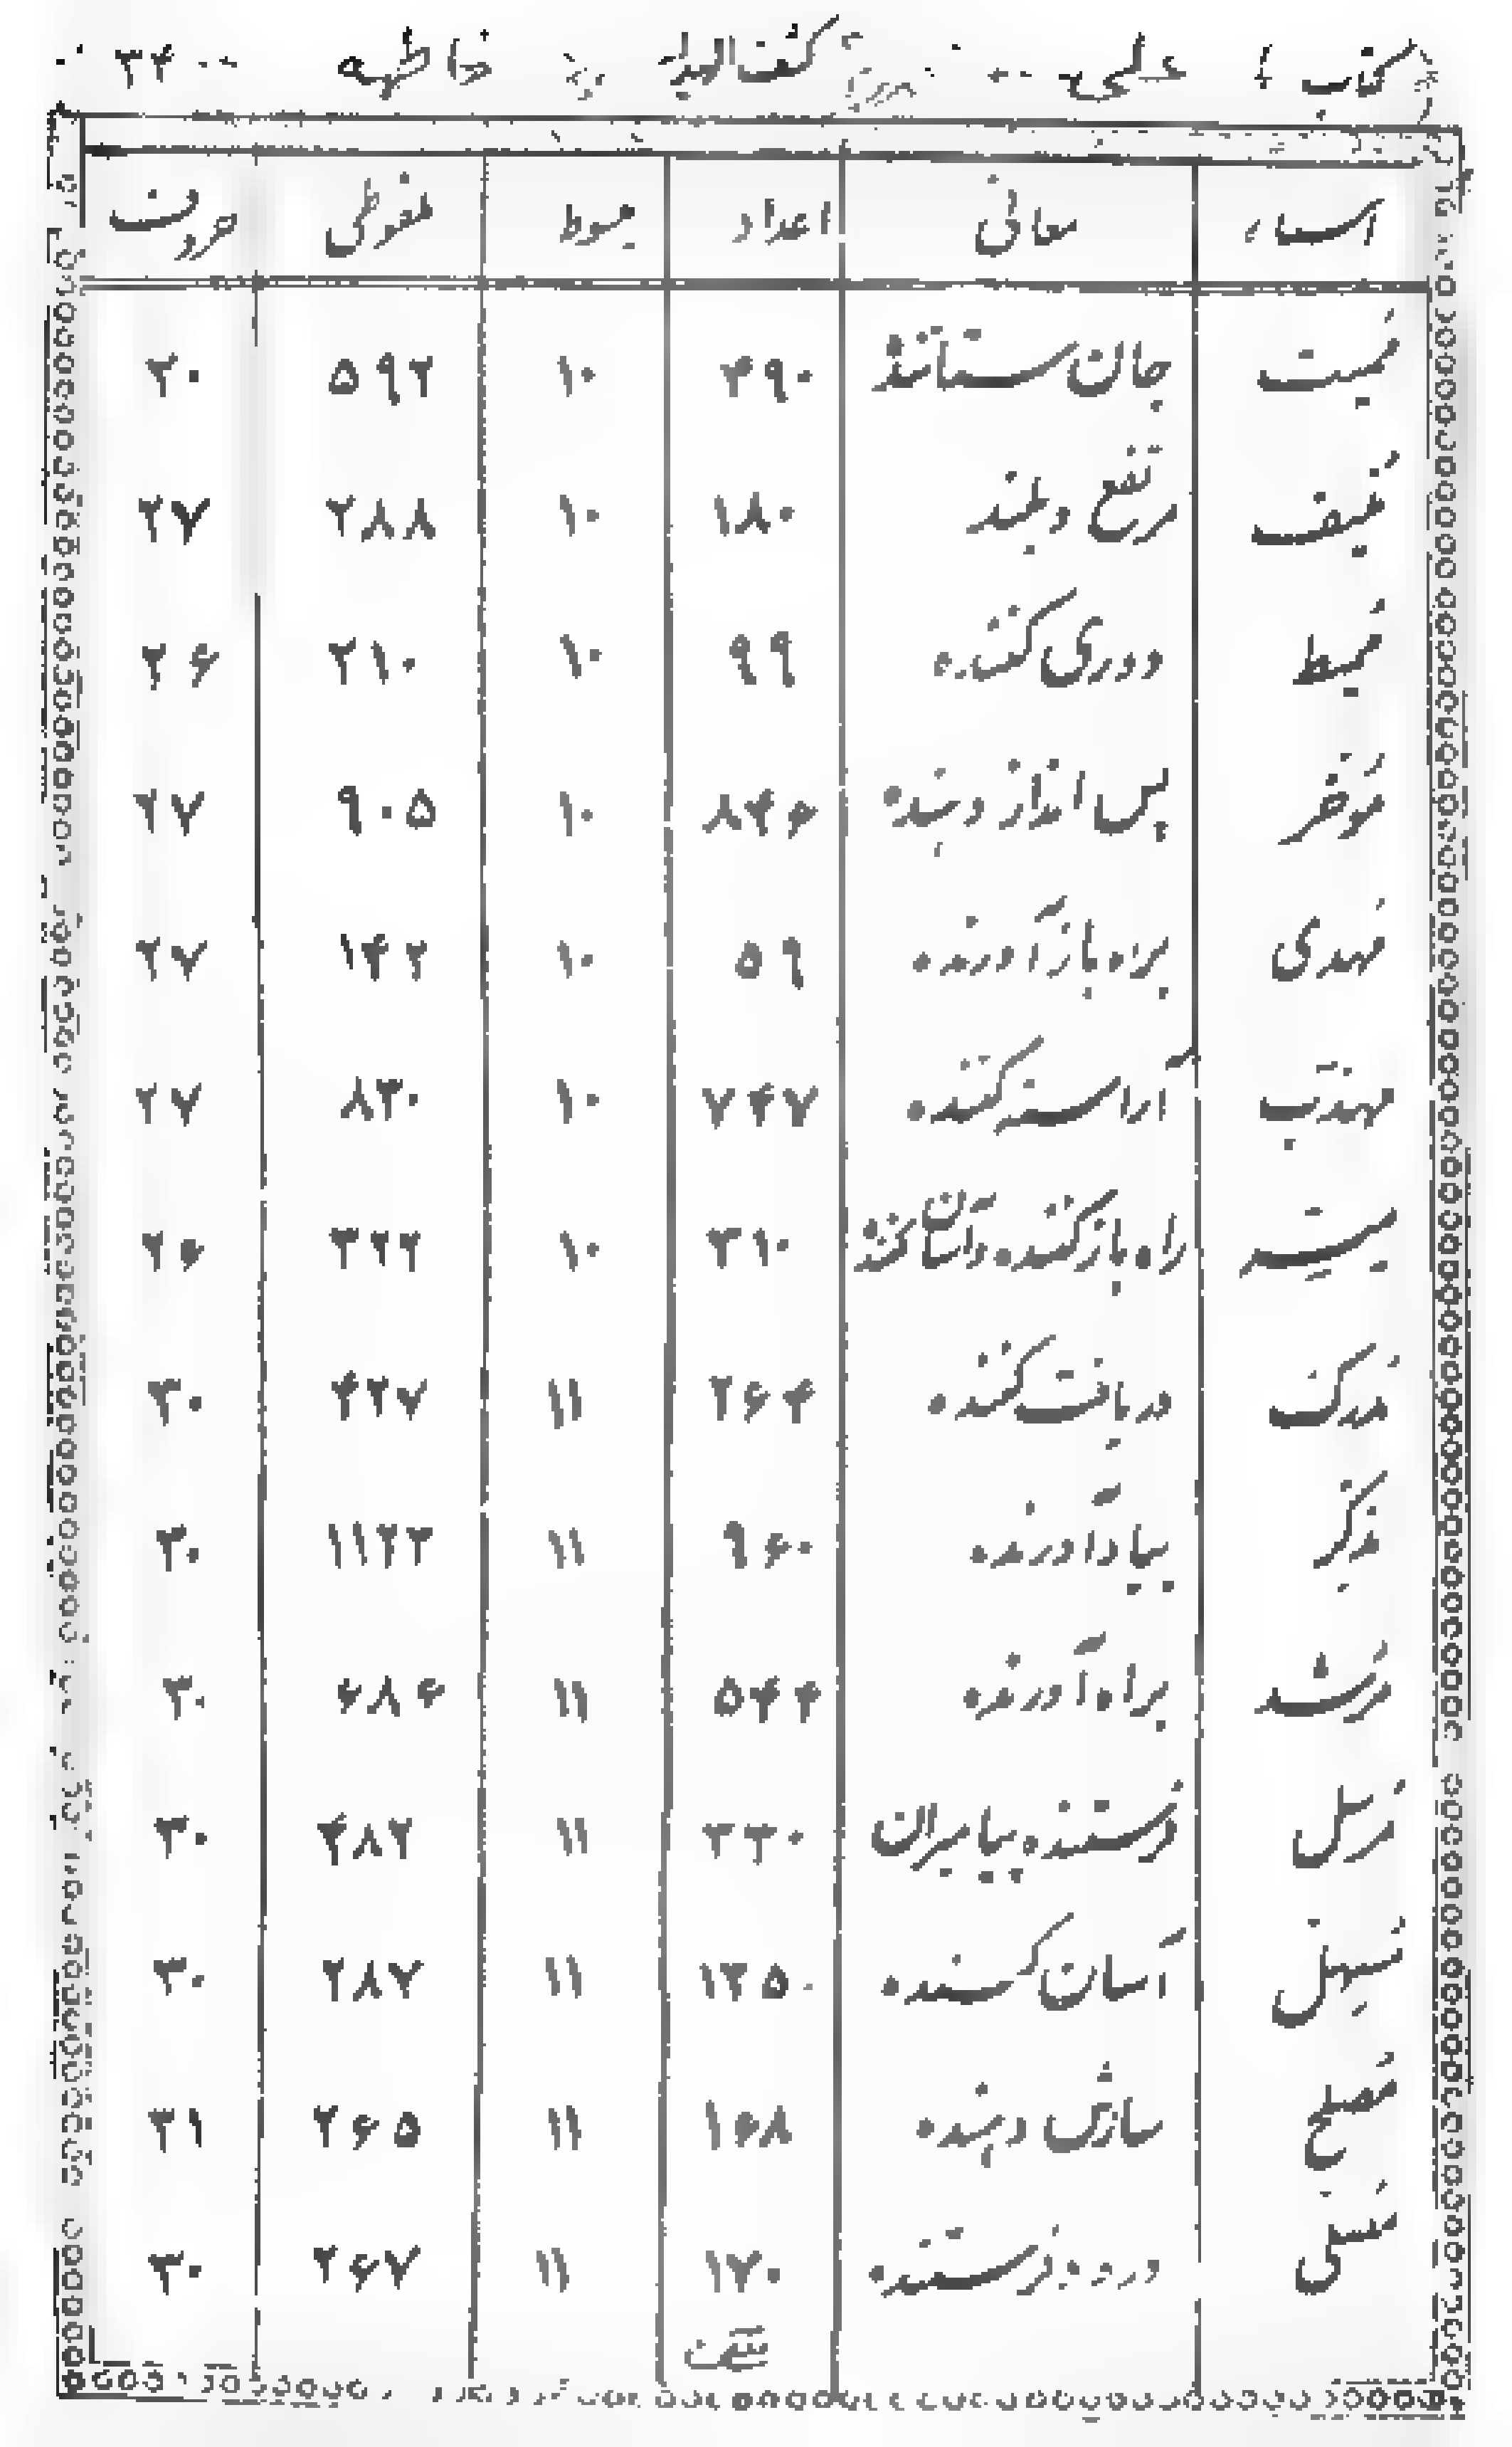 کتاب علمی کشف الهدایه خاطیه ۳۴۰۰
اسماء معانی اعداد مبسوط ملفوظی حروف
ممیت جان ستاننده ۴۹۰ ۱۰ ۵۹۲ ۲۰
منیف مرتفع و بلند ۱۸۰ ۱۰ ۲۸۸ ۲۷
ممیط دوری کننده ۹۹ ۱۰ ۲۱۰ ۲۶
موخر پس انداز دهنده ۸۴۶ ۱۰ ۹۰۵ ۲۷
مهدی براه باز آورنده ۵۹ ۱۰ ۱۴۲ ۲۷
مهذب آراسته کننده ۷۴۷ ۱۰ ۸۳۰ ۲۷
راه باز کننده و آسان ۳۱۰ ۱۰ ۳۲۲ ۲۶
مدرک دریافت کننده ۲۶۴ ۱۱ ۴۲۷ ۳۰
مذکر بیاد آورنده ۹۶۰ ۱۱ ۱۱۲۲ ۳۰
مرشد براه آورنده ۵۴۴ ۱۱ ۶۸۶ ۳۰
مرسل فرستنده پیامبران ۳۳۰ ۱۱ ۴۸۲ ۳۰
مسهل آسان کننده ۱۳۵۰ ۱۱ ۲۸۷ ۳۰
مصلح سازش دهنده ۱۶۸ ۱۱ ۲۶۵ ۳۱
مصلی درود فرستنده ۱۷۰ ۱۱ ۲۶۷ ۳۰